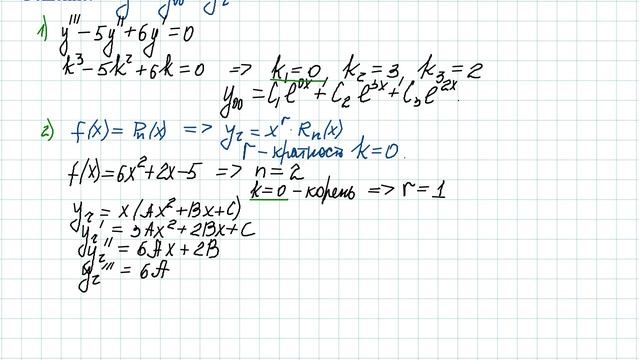 1) y''' - 5y'' + 6y' = 0
k³ - 5k² + 6k = 0 => k₁ = 0, k₂ = 3, k₃ = 2
y₀₀ = C₁e⁰ˣ + C₂e³ˣ + C₃e²ˣ.
2) f(x) = Pₙ(x) => yᵣ = xʳ · Rₙ(x)
r - кратность k = 0.
f(x) = 6x² + 2x - 5 => n = 2
k = 0 - корень => r = 1
yᵣ = x(Ax² + Bx + C)
yᵣ' = 3Ax² + 2Bx + C
yᵣ'' = 6Ax + 2B
yᵣ''' = 6A